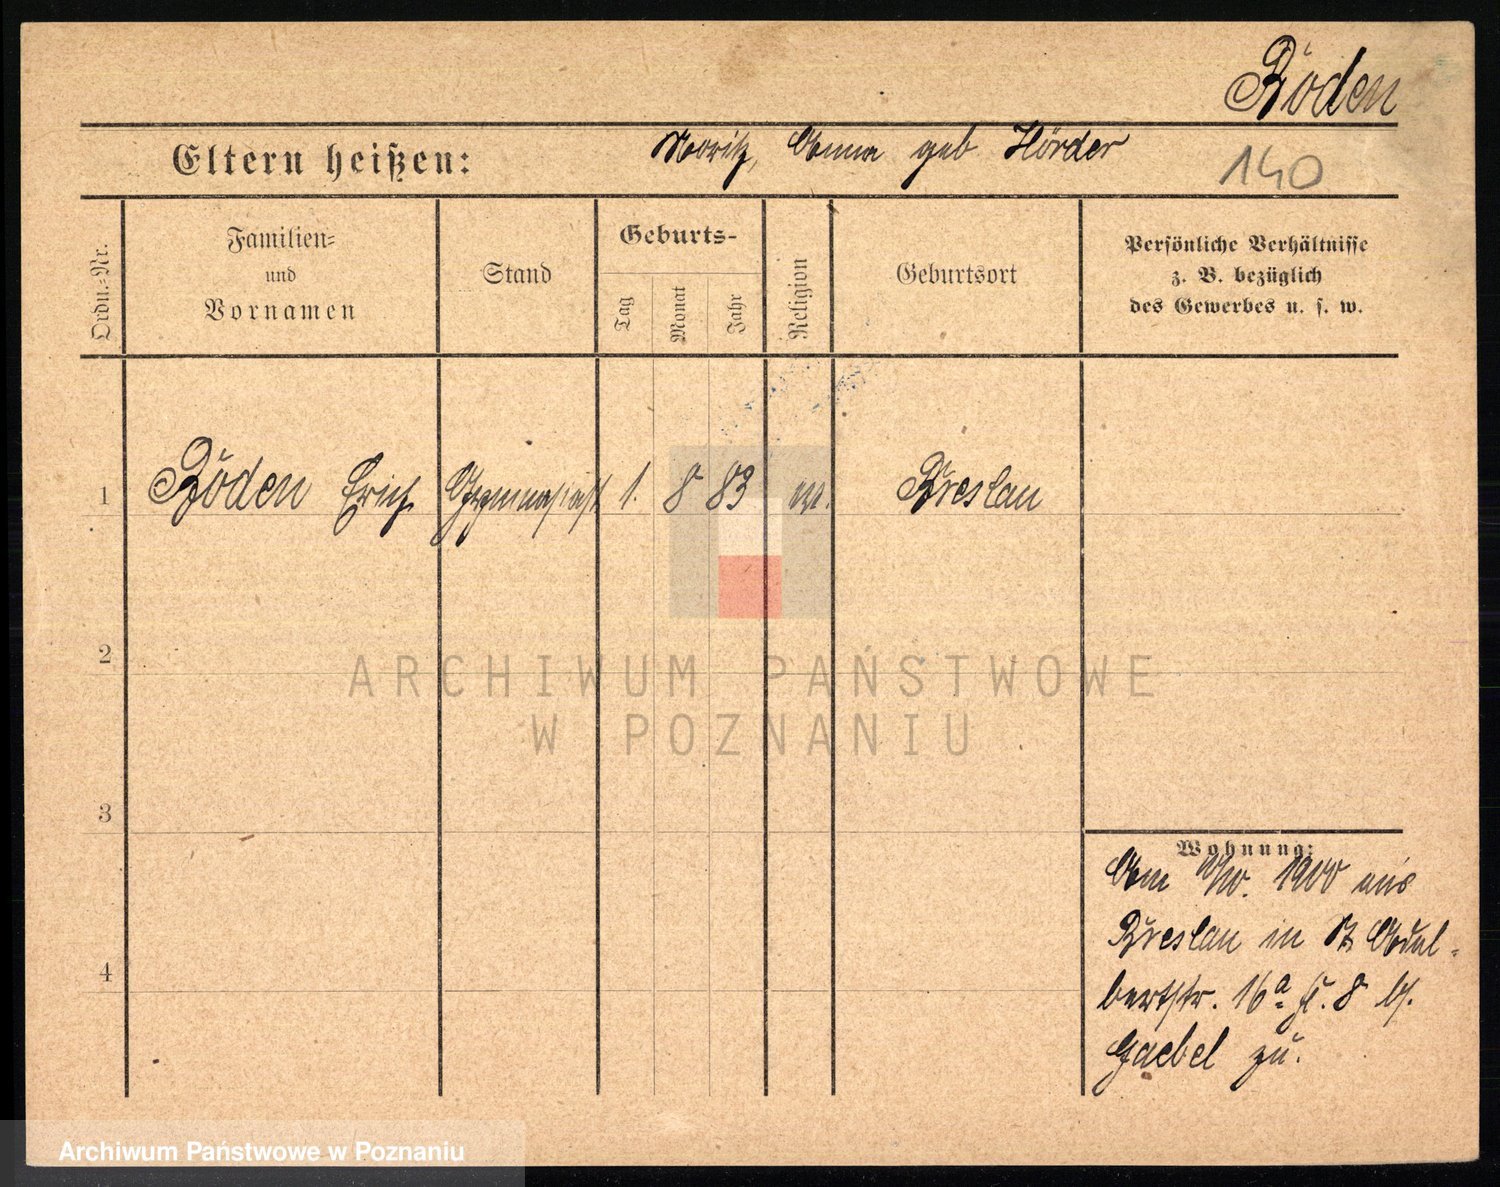 Röden
Eltern heißen: Moritz, Anna geb Hörder
140
Ordn.-Nr.
Familien-
und
Vornamen
Stand
Geburts-
Tag
Monat
Jahr
Religion
Geburtsort
Persönliche Verhältnisse
z. B. bezüglich
des Gewerbes u. s. w.
1 Röden Erich Gymnasiast 1. 8 83 Breslau
2
ARCHIWUM PAŃSTWOWE
W POZNANIU
3
Wohnung:
Am 1900 aus
Breslau in Adal-
4
bertstr. 16a 8 bs.
Gaebel zu.
Archiwum Państwowe w Poznaniu